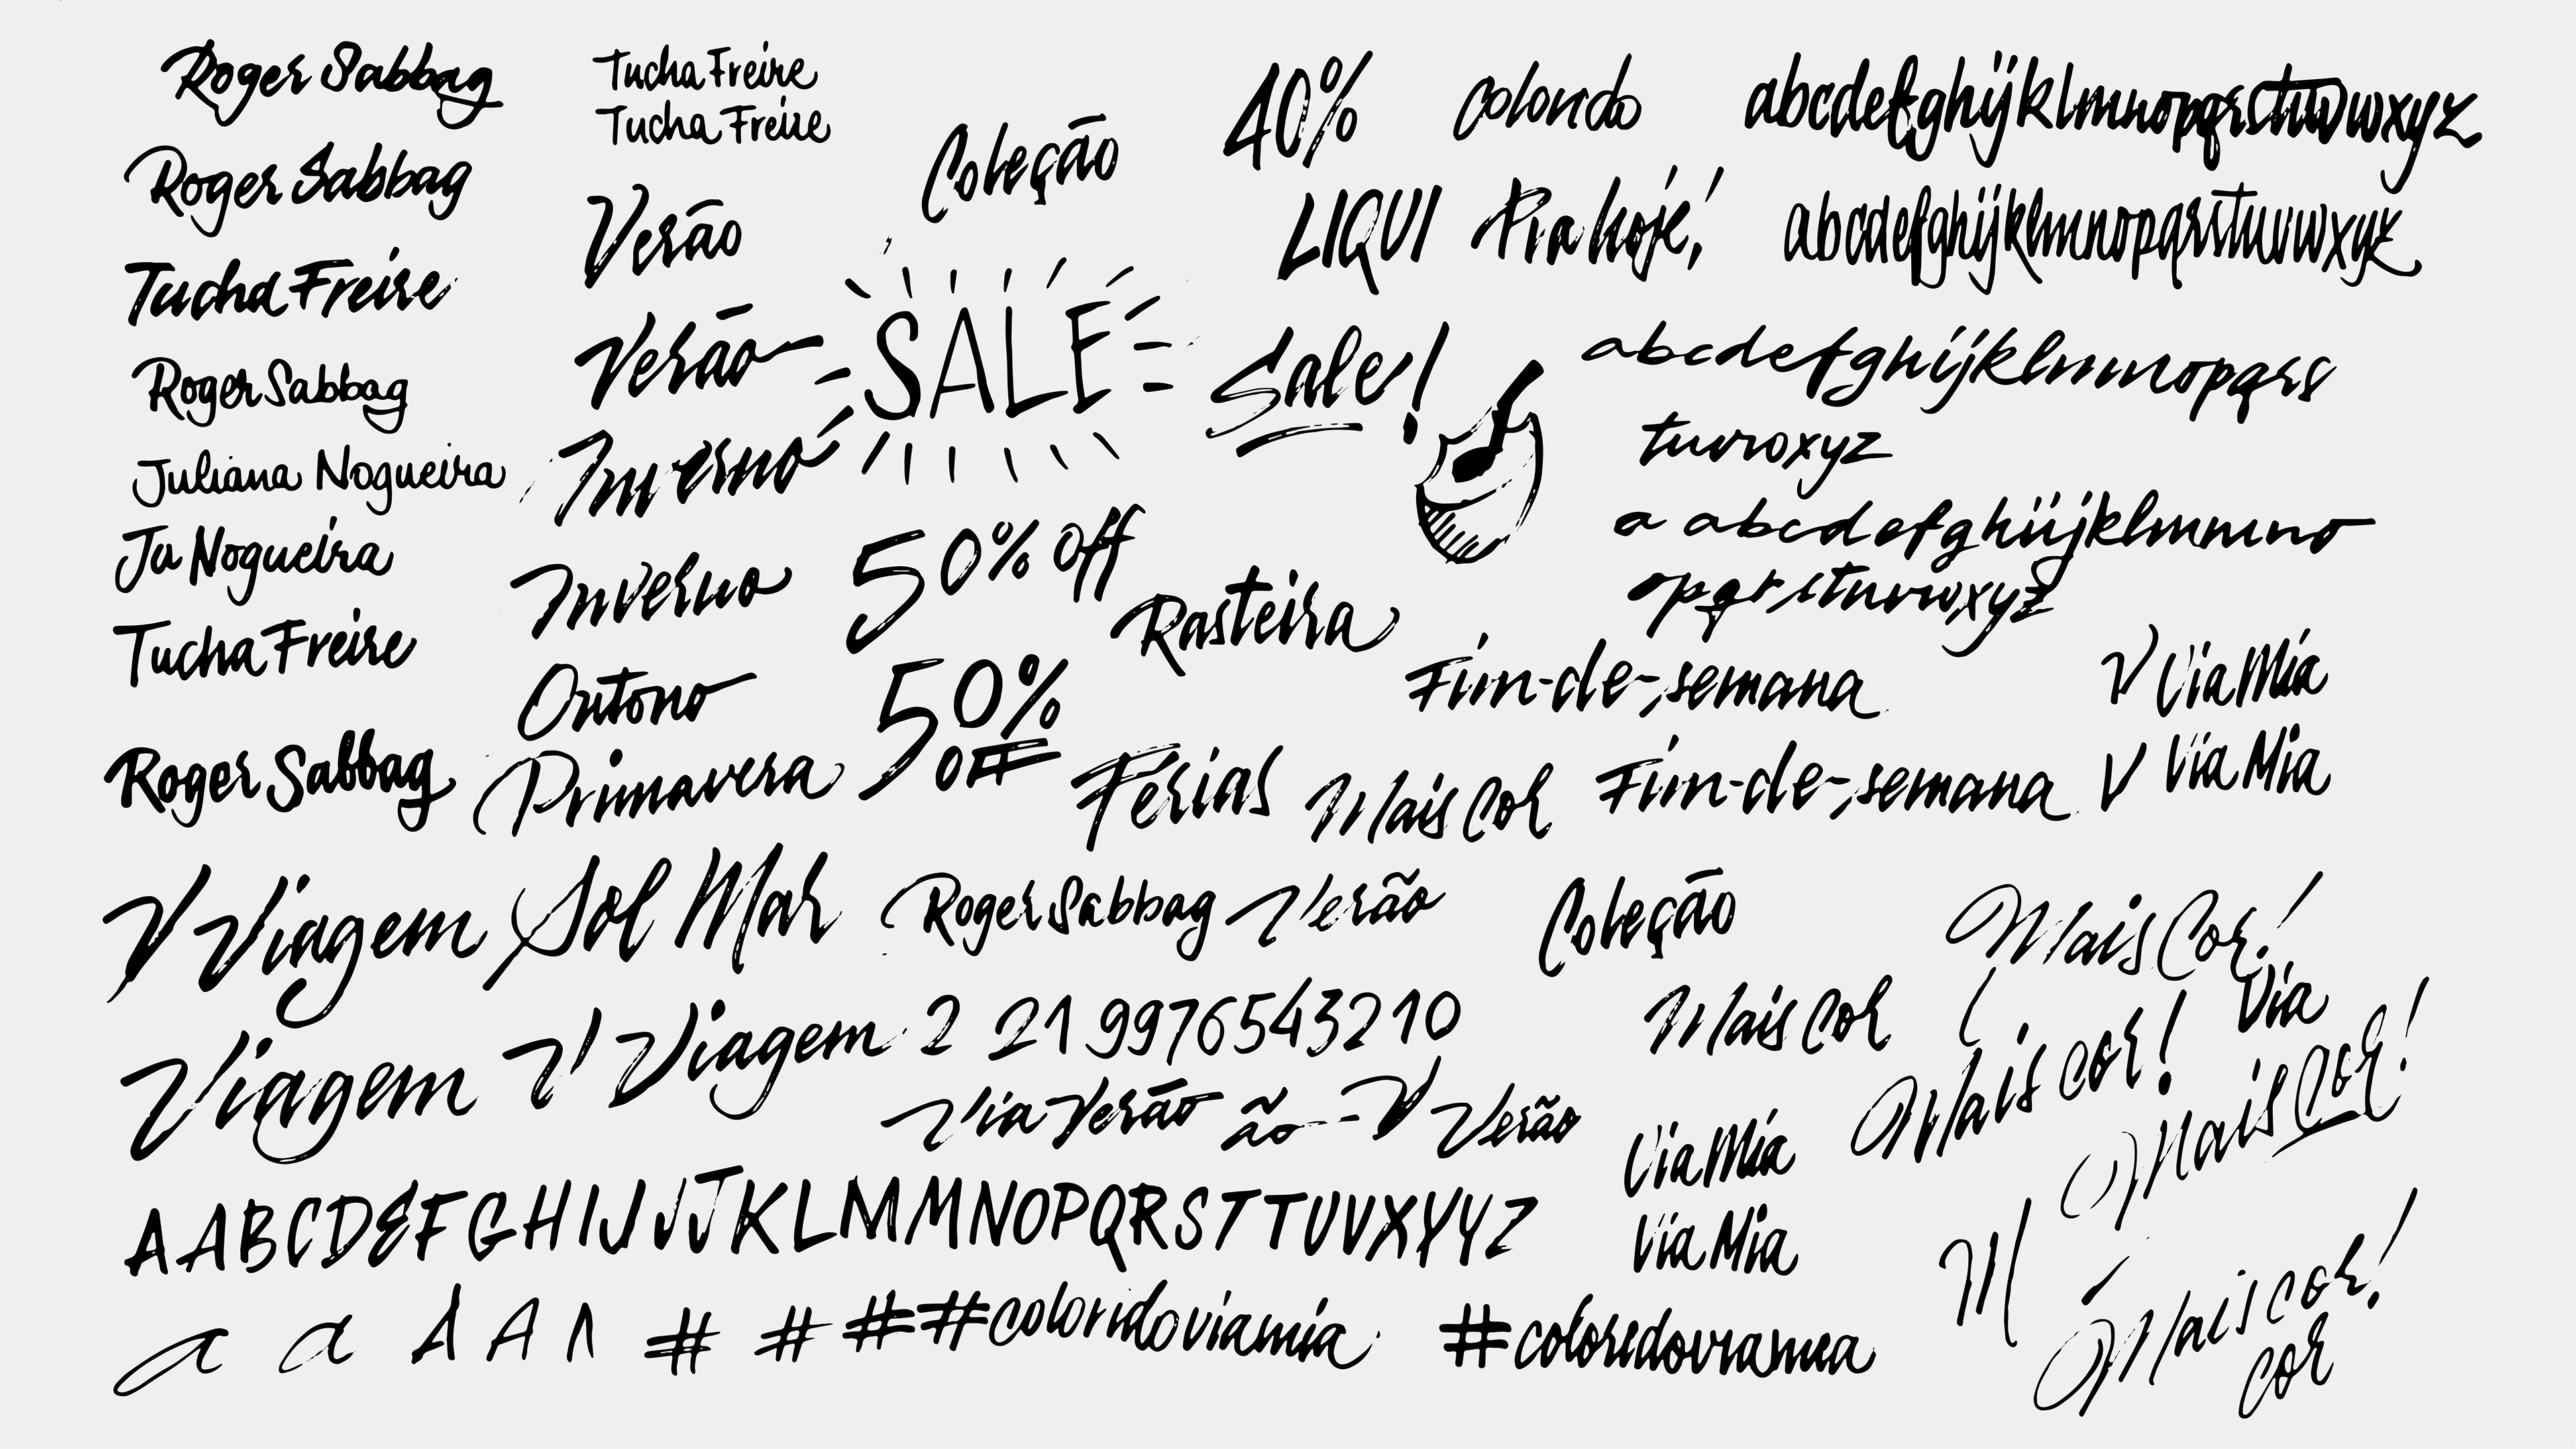 Roger Sabbag
Roger Sabbag
Tucha Freire
Roger Sabbag
Juliana Nogueira
Ju Nogueira
Tucha Freire
Roger Sabbag
Tucha Freire
Tucha Freire
Verão
Verão
Inverno
Inverno
Outono
Primavera
Coleção
SALE
50% off
50%
OFF
40%
LIQUI
Sale!
Rasteira
Férias
Mais Cor
colorido
Pra hoje!
abcdefghijklmnopqrstuvwxyz
abcdefghijklmnopqrstuvwxyz
abcdefghijklmnopqrs
tuvwxyz
a abcdefghiijklmnmno
opqrrstuvwxyz
Fim-de-semana
Fim-de-semana
V Via Mia
V Via Mia
V Viagem Sol Mar
Roger Sabbag Verão
Coleção
Mais Cor!
Viagem V Viagem
2 21 9976543210
Mais Cor
Via
Mais Cor!
Mais Cor!
Via Verão ão - V Verão
Via Mia
Via Mia
AABCDEFGHIJJJKLMMNOPQRSTTUVVXYYZ
a a A A A # # # #coloridoviamia
#coloridoviamia
M
Mais cor!
cor